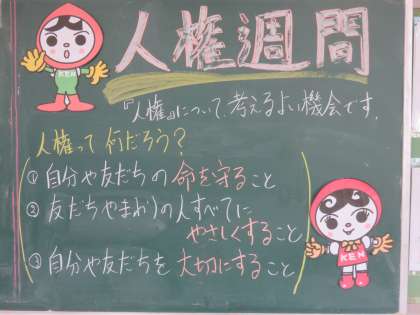 人権週間
『人権』について、考えるよい機会です。
人権って何だろう?
① 自分や友だちの命を守ること
② 友だちやまわりの人すべてに
やさしくすること
③ 自分や友だちを大切にすること
KEN
KEN